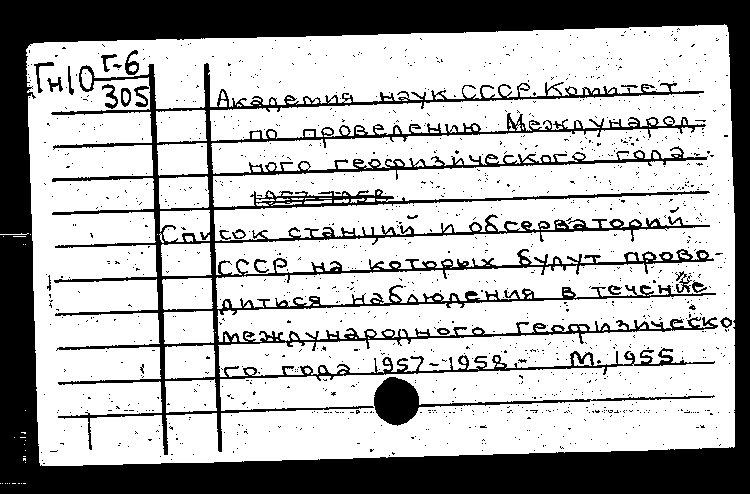 Гн10 Г-6
305
Академия наук СССР. Комитет
по проведению Международ-
ного геофизического года.
1957-1958.
Список станций и обсерваторий
СССР, на которых будут прово-
диться наблюдения в течение
международного геофизическо
го года 1957-1958.- М., 1955.